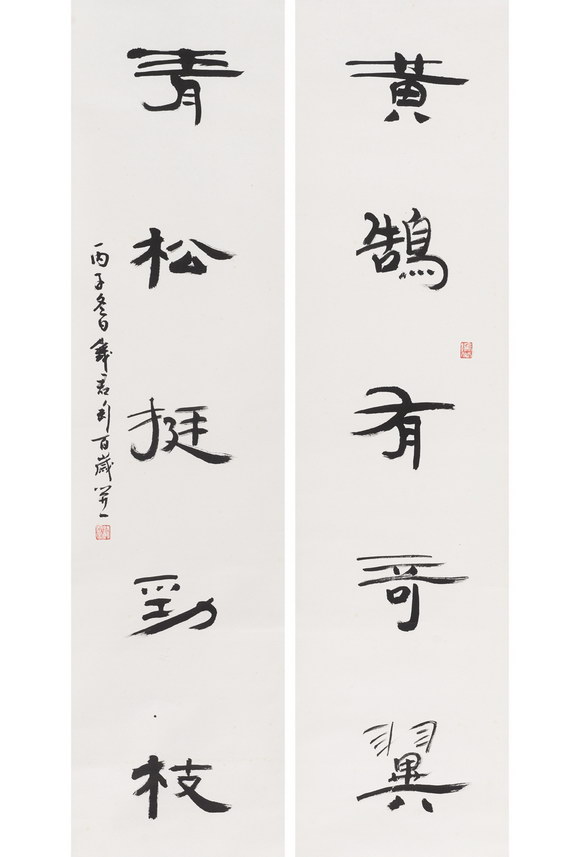 黃鵠有奇翼
青松挺勁枝
丙子冬日 百歲開一